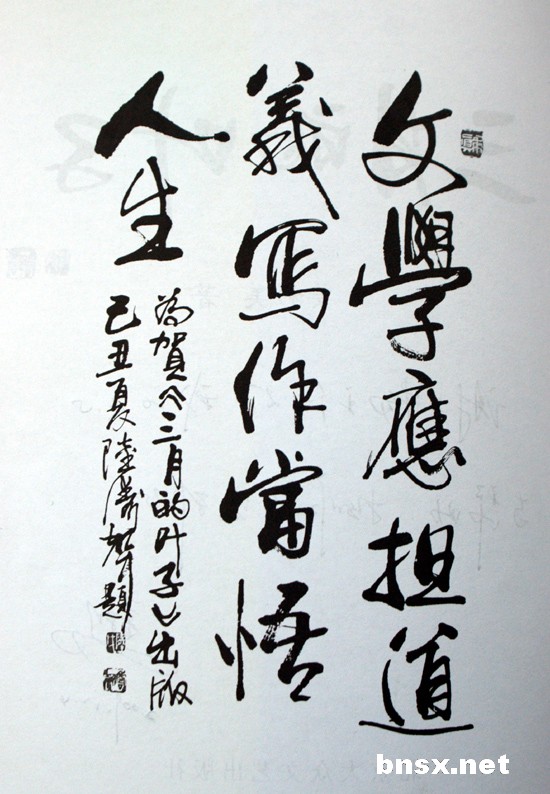 文學應担道
義写作當悟
人生
為賀《三月的叶子》出版
己丑夏陸題
bnsx.net